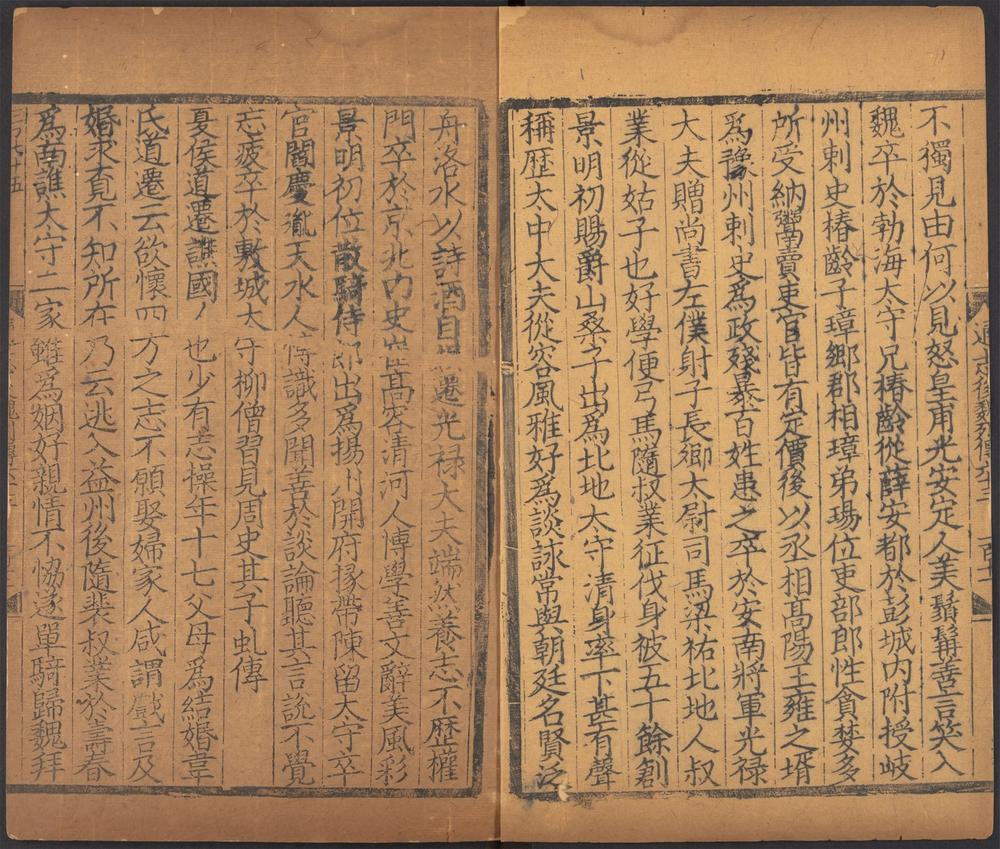 不獨見由何以見怒皇甫光安定人美鬚髯善言笑入
魏卒於勃海太守兄椿齡從薛安都於彭城內附授岐
州刺史椿齡子璋鄉郡相璋弟瑒位吏部郎性貪婪多
所受納鬻賣吏官皆有定價後以丞相高陽王雍之壻
為豫州刺史為政殘暴百姓患之卒於安南將軍光禄
大夫贈尚書左僕射子長卿太尉司馬梁祐北地人叔
業從姑子也好學便弓馬隨叔業征伐身被五十餘創
景明初賜爵山桑子出為北地太守清身率下甚有聲
稱歷太中大夫從容風雅好為談詠常與朝廷名賢泛
舟洛水以詩酒自 遷光禄大夫端然養志不歷權
門卒於京北内史崔高容清河人博學善文辭美風彩
景明初位散騎侍郎出為揚州開府掾帶陳留太守卒
官閻慶胤天水人博識多聞善於談論聽其言說不覺
忘疲卒於敷城太守柳僧習見周史其子虬傳
夏侯道遷譙國人也少有志操年十七父母為結婚韋
氏道遷云欲懷四方之志不願娶婦家人咸謂戲言及
婚求覓不知所在乃云逃入益州後隨裴叔業於壽春
為南譙太守二家雖為姻好親情不協遂單騎歸魏拜